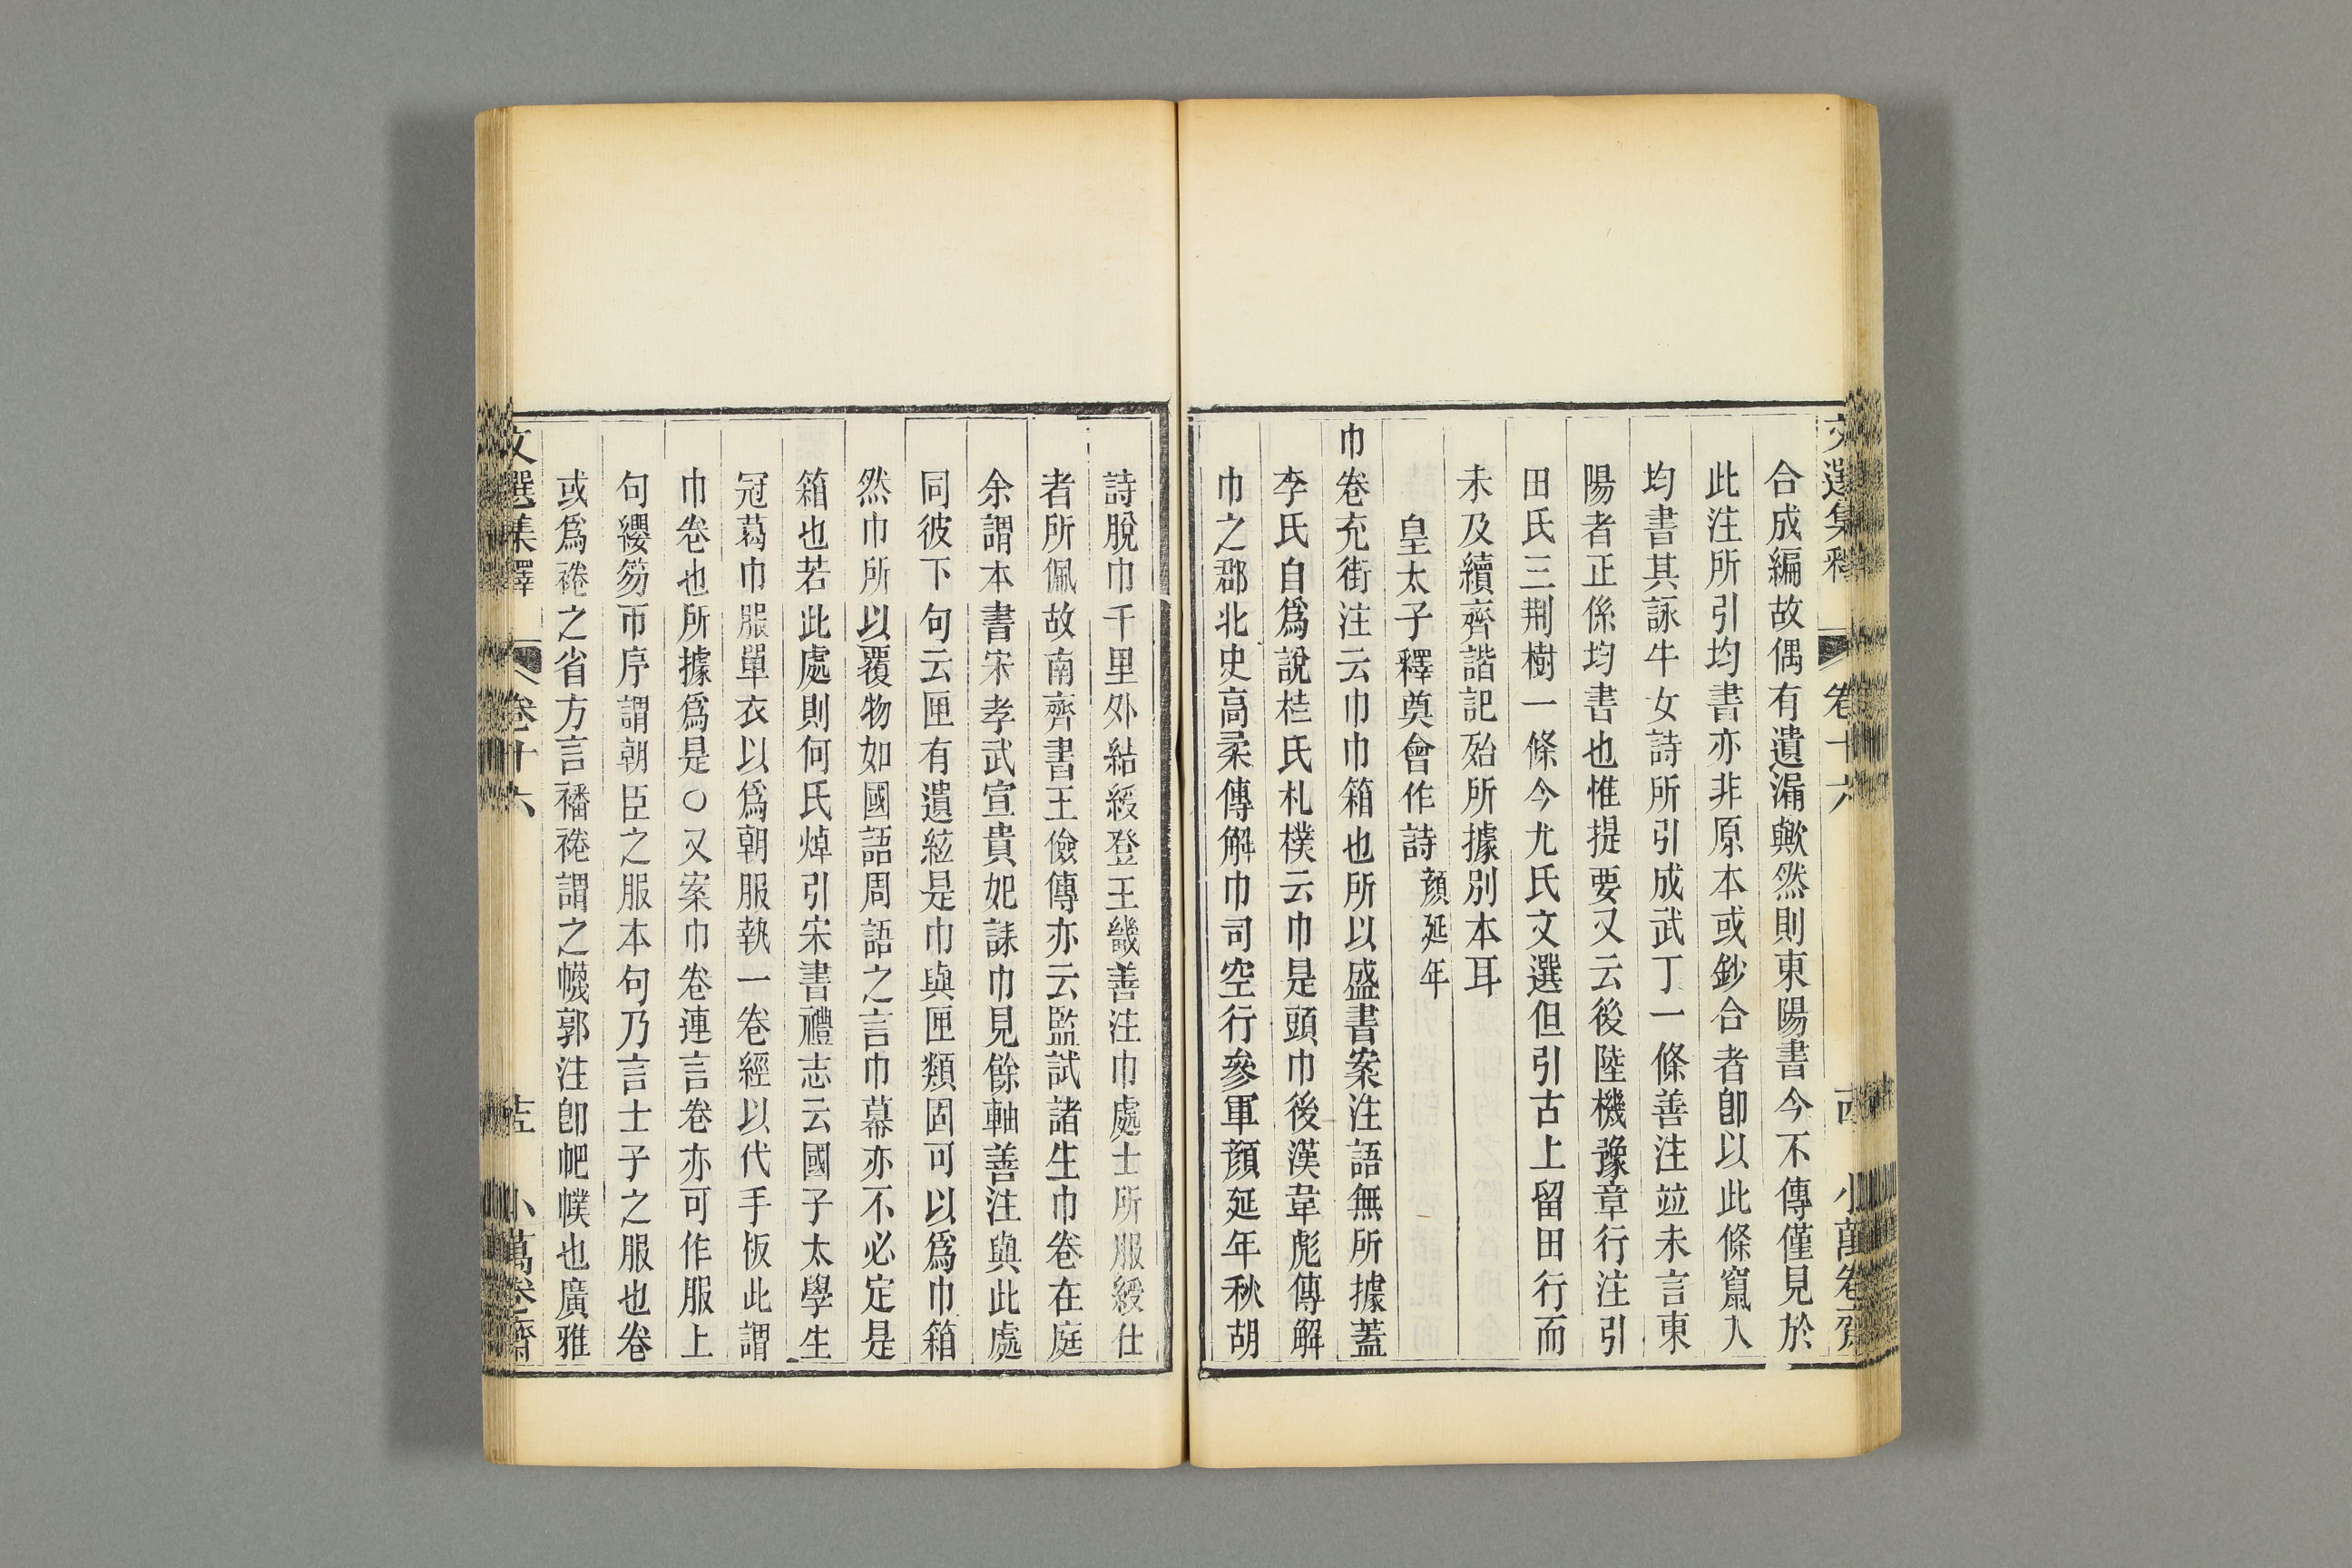 文選集釋 卷十六 小萬卷齋
合成編故偶有遺漏歟然則東陽書今不傳僅見於
此注所引均書亦非原本或鈔合者卽以此條竄入
均書其詠牛女詩所引成武丁一條善注竝未言東
陽者正係均書也惟提要又云後陸機豫章行注引
田氏三荆樹一條今尤氏文選但引古上留田行而
未及續齊諧記殆所據別本耳
皇太子釋奠會作詩 顏延年
巾卷充街注云巾巾箱也所以盛書案注語無所據蓋
李氏自爲說桂氏札樸云巾是頭巾後漢韋彪傳解
巾之郡北史高柔傳解巾司空行參軍顏延年秋胡
詩脫巾千里外結綬登王畿善注巾處士所服綬仕
者所佩故南齊書王儉傳亦云監試諸生巾卷在庭
余謂本書宋孝武宣貴妃誄巾見餘軸善注與此處
同彼下句云匣有遺絃是巾與匣類固可以爲巾箱
然巾所以覆物如國語周語之言巾幕亦不必定是
箱也若此處則何氏焯引宋書禮志云國子太學生
冠葛巾服單衣以爲朝服執一卷經以代手板此謂
巾卷也所據爲是○又案巾卷連言卷亦可作服上
句纓笏帀序謂朝臣之服本句乃言士子之服也卷
或爲裷之省方言襎裷謂之幭郭注卽帊幞也廣雅
文選集釋 卷十六 小萬卷齋